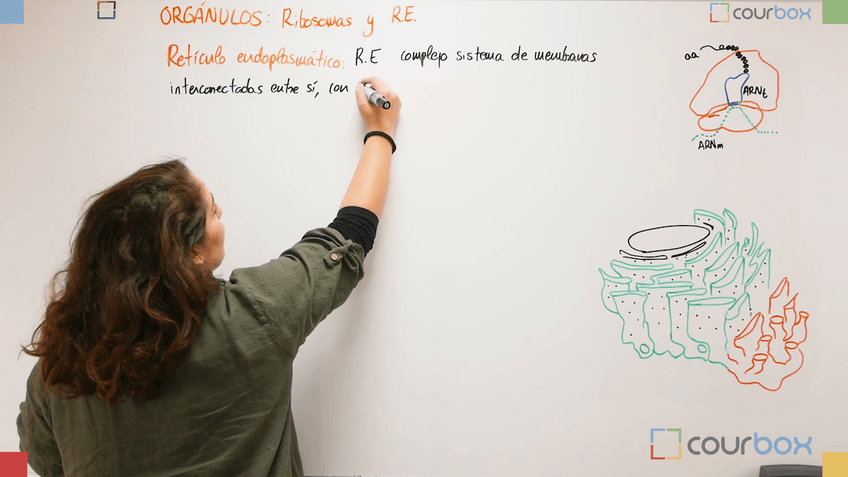 ORGÁNULOS: Ribosomas y R.E.
courbox
Retículo endoplasmático: R.E complejo sistema de membranas
interconectadas entre sí, con
aa
ARNt
ARNm
courbox